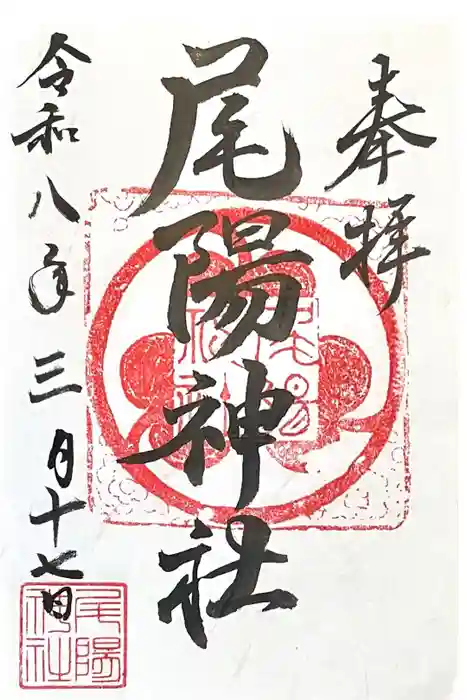 奉拝
尾陽神社
令和八年三月十七日
尾陽神社